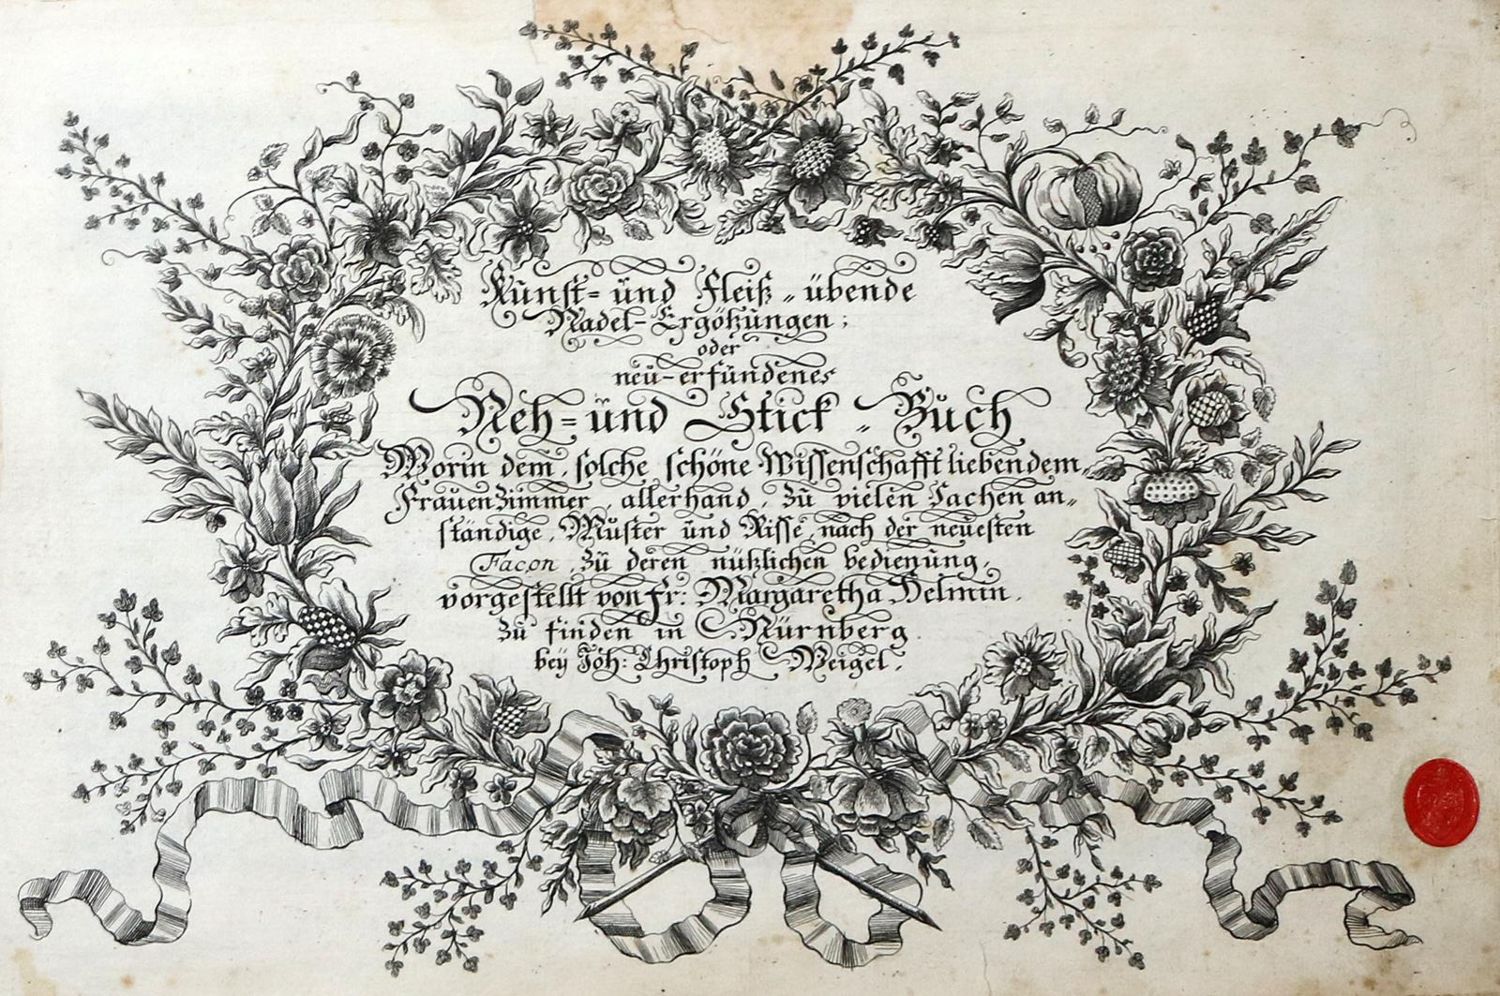 Kunst= und Fleiß „ übende
Nadel-Ergötzungen;
oder
neu-erfundenes
Neh= und Stick „ Buch
Worin dem, solche schöne Wissenschafft liebendem,
Frauenzimmer, allerhand, zu vielen Sachen an„
ständige, Muster und Risse, nach der neuesten
Façon, zu deren nützlichen bedienung,
vorgestellt von Fr: Margaretha Helmin.
zu finden in Nürnberg.
bey Joh: Christoph Weigel.